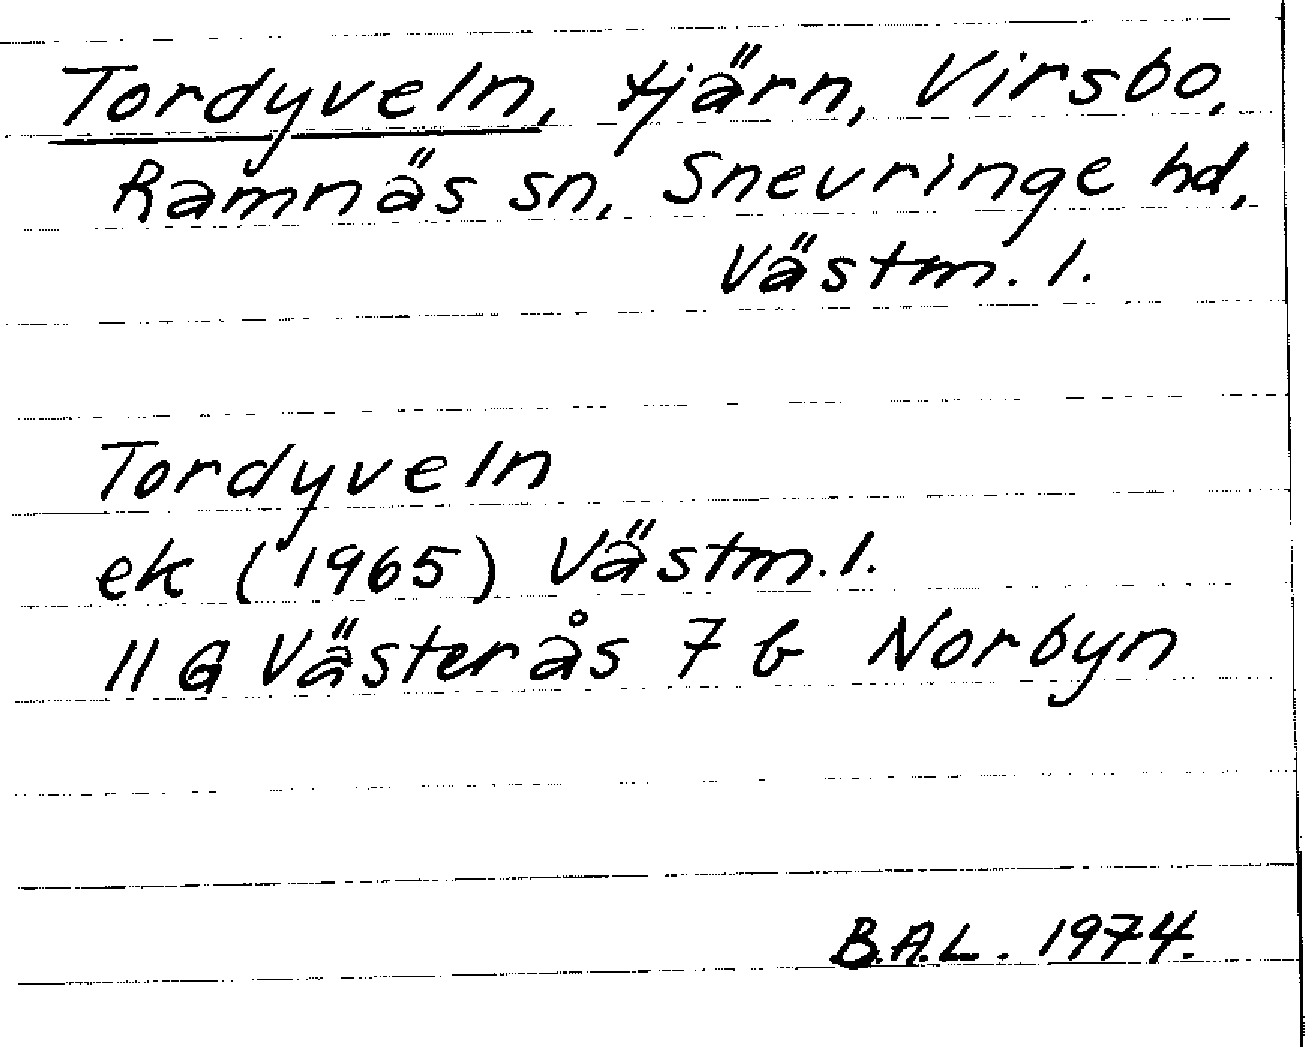 Tordyveln, tjärn, Virsbo,
Ramnäs sn, Snevringe hd,
Västm. l.
Tordyveln
ek (1965) Västm. l.
11 G Västerås 7 b Norbyn
B.A.L. 1974.